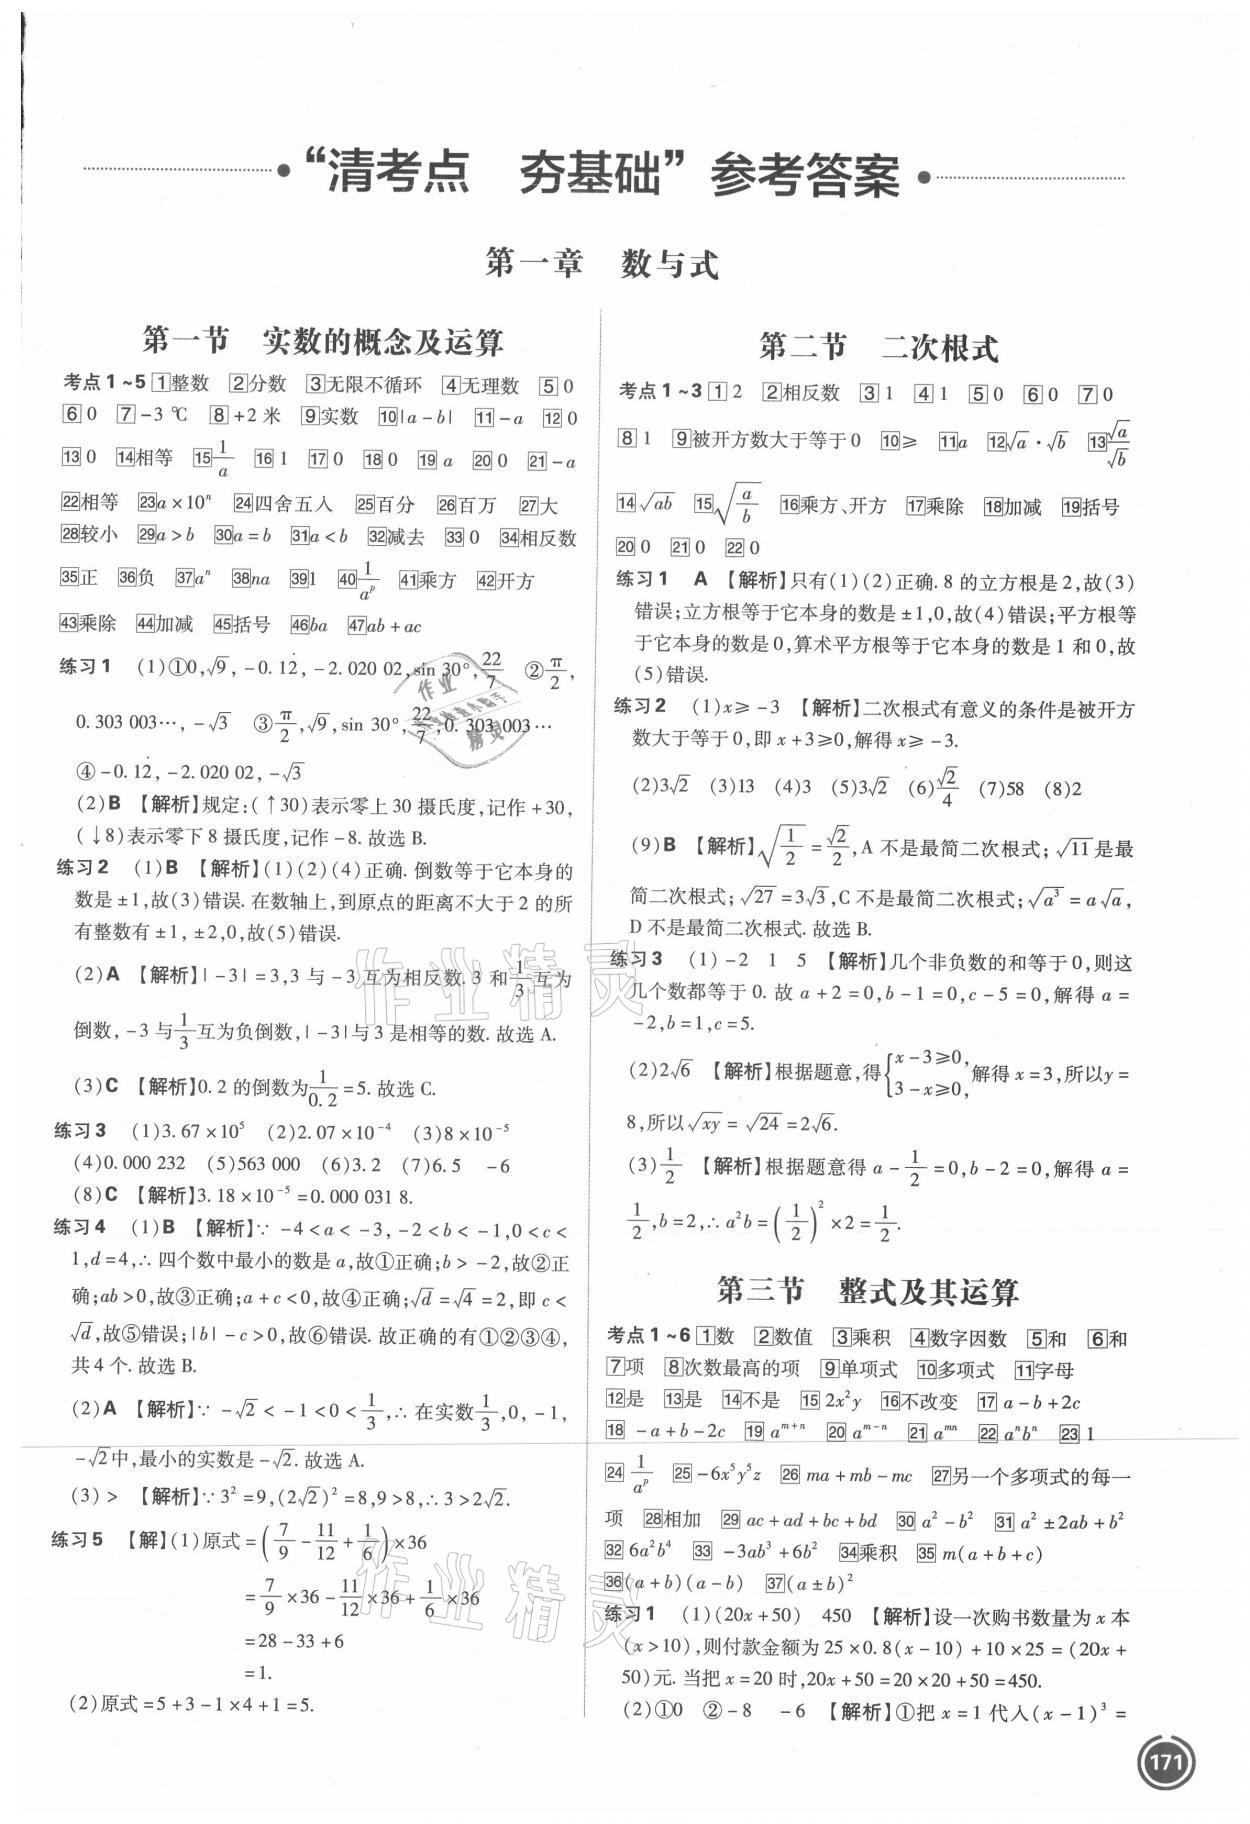 “清考点　夯基础”参考答案
第一章　数与式
第一节　实数的概念及运算
考点1~5 [1]整数　[2]分数　[3]无限不循环　[4]无理数　[5]0
[6]0　[7]-3 ℃　[8]+2米　[9]实数　[10]|a-b|　[11]-a　[12]0
[13]0　[14]相等　[15]1/a　[16]1　[17]0　[18]0　[19]a　[20]0　[21]-a
[22]相等　[23]a×10ⁿ　[24]四舍五入　[25]百分　[26]百万　[27]大
[28]较小　[29]a>b　[30]a=b　[31]a<b　[32]减去　[33]0　[34]相反数
[35]正　[36]负　[37]aⁿ　[38]na　[39]1　[40]1/a^p　[41]乘方　[42]开方
[43]乘除　[44]加减　[45]括号　[46]ba　[47]ab+ac
练习1　(1)①0,√9,-0.1̇2̇,-2.020 02,sin 30°,22/7　②π/2,
0.303 003…,-√3　③π/2,√9,sin 30°,22/7,0.303 003…
④-0.1̇2̇,-2.020 02,-√3
(2)B 【解析】规定:(↑30)表示零上30摄氏度,记作+30,
(↓8)表示零下8摄氏度,记作-8.故选B.
练习2　(1)B 【解析】(1)(2)(4)正确.倒数等于它本身的
数是±1,故(3)错误.在数轴上,到原点的距离不大于2的所
有整数有±1,±2,0,故(5)错误.
(2)A 【解析】|-3|=3,3与-3互为相反数.3和1/3互为
倒数,-3与1/3互为负倒数,|-3|与3是相等的数.故选A.
(3)C 【解析】0.2的倒数为1/0.2=5.故选C.
练习3　(1)3.67×10⁵　(2)2.07×10⁻⁴　(3)8×10⁻⁵
(4)0.000 232　(5)563 000　(6)3.2　(7)6.5　-6
(8)C 【解析】3.18×10⁻⁵=0.000 031 8.
练习4　(1)B 【解析】∵-4<a<-3,-2<b<-1,0<c<
1,d=4,∴四个数中最小的数是a,故①正确;b>-2,故②正
确;ab>0,故③正确;a+c<0,故④正确;√d=√4=2,即c<
√d,故⑤错误;|b|-c>0,故⑥错误.故正确的有①②③④,
共4个.故选B.
(2)A 【解析】∵-√2<-1<0<1/3,∴在实数1/3,0,-1,
-√2中,最小的实数是-√2.故选A.
(3)> 【解析】∵3²=9,(2√2)²=8,9>8,∴3>2√2.
练习5 【解】(1)原式=(7/9-11/12+1/6)×36
=7/9×36-11/12×36+1/6×36
=28-33+6
=1.
(2)原式=5+3-1×4+1=5.
第二节　二次根式
考点1~3 [1]2　[2]相反数　[3]1　[4]1　[5]0　[6]0　[7]0
[8]1　[9]被开方数大于等于0　[10]≥　[11]a　[12]√a·√b　[13]√a/√b
[14]√ab　[15]√(a/b)　[16]乘方、开方　[17]乘除　[18]加减　[19]括号
[20]0　[21]0　[22]0
练习1　A 【解析】只有(1)(2)正确.8的立方根是2,故(3)
错误;立方根等于它本身的数是±1,0,故(4)错误;平方根等
于它本身的数是0,算术平方根等于它本身的数是1和0,故
(5)错误.
练习2　(1)x≥-3 【解析】二次根式有意义的条件是被开方
数大于等于0,即x+3≥0,解得x≥-3.
(2)3√2　(3)13　(4)3　(5)3√2　(6)√2/4　(7)58　(8)2
(9)B 【解析】√(1/2)=√2/2,A不是最简二次根式;√11是最
简二次根式;√27=3√3,C不是最简二次根式;√a³=a√a,
D不是最简二次根式.故选B.
练习3　(1)-2　1　5 【解析】几个非负数的和等于0,则这
几个数都等于0.故a+2=0,b-1=0,c-5=0,解得a=
-2,b=1,c=5.
(2)2√6 【解析】根据题意,得{x-3≥0, 3-x≥0, 解得x=3,所以y=
8,所以√xy=√24=2√6.
(3)1/2 【解析】根据题意得a-1/2=0,b-2=0,解得a=
1/2,b=2,∴a²b=(1/2)²×2=1/2.
第三节　整式及其运算
考点1~6 [1]数　[2]数值　[3]乘积　[4]数字因数　[5]和　[6]和
[7]项　[8]次数最高的项　[9]单项式　[10]多项式　[11]字母
[12]是　[13]是　[14]不是　[15]2x²y　[16]不改变　[17]a-b+2c
[18]-a+b-2c　[19]a^(m+n)　[20]a^(m-n)　[21]a^(mn)　[22]aⁿbⁿ　[23]1
[24]1/a^p　[25]-6x⁵y⁵z　[26]ma+mb-mc　[27]另一个多项式的每一
项　[28]相加　[29]ac+ad+bc+bd　[30]a²-b²　[31]a²±2ab+b²
[32]6a²b⁴　[33]-3ab³+6b²　[34]乘积　[35]m(a+b+c)
[36](a+b)(a-b)　[37](a±b)²
练习1　(1)(20x+50)　450 【解析】设一次购书数量为x本
(x>10),则付款金额为25×0.8(x-10)+10×25=(20x+
50)元.当把x=20时,20x+50=20×20+50=450.
(2)①0　②-8　-6 【解析】①把x=1代入(x-1)³=
171
作业精灵
作业精灵